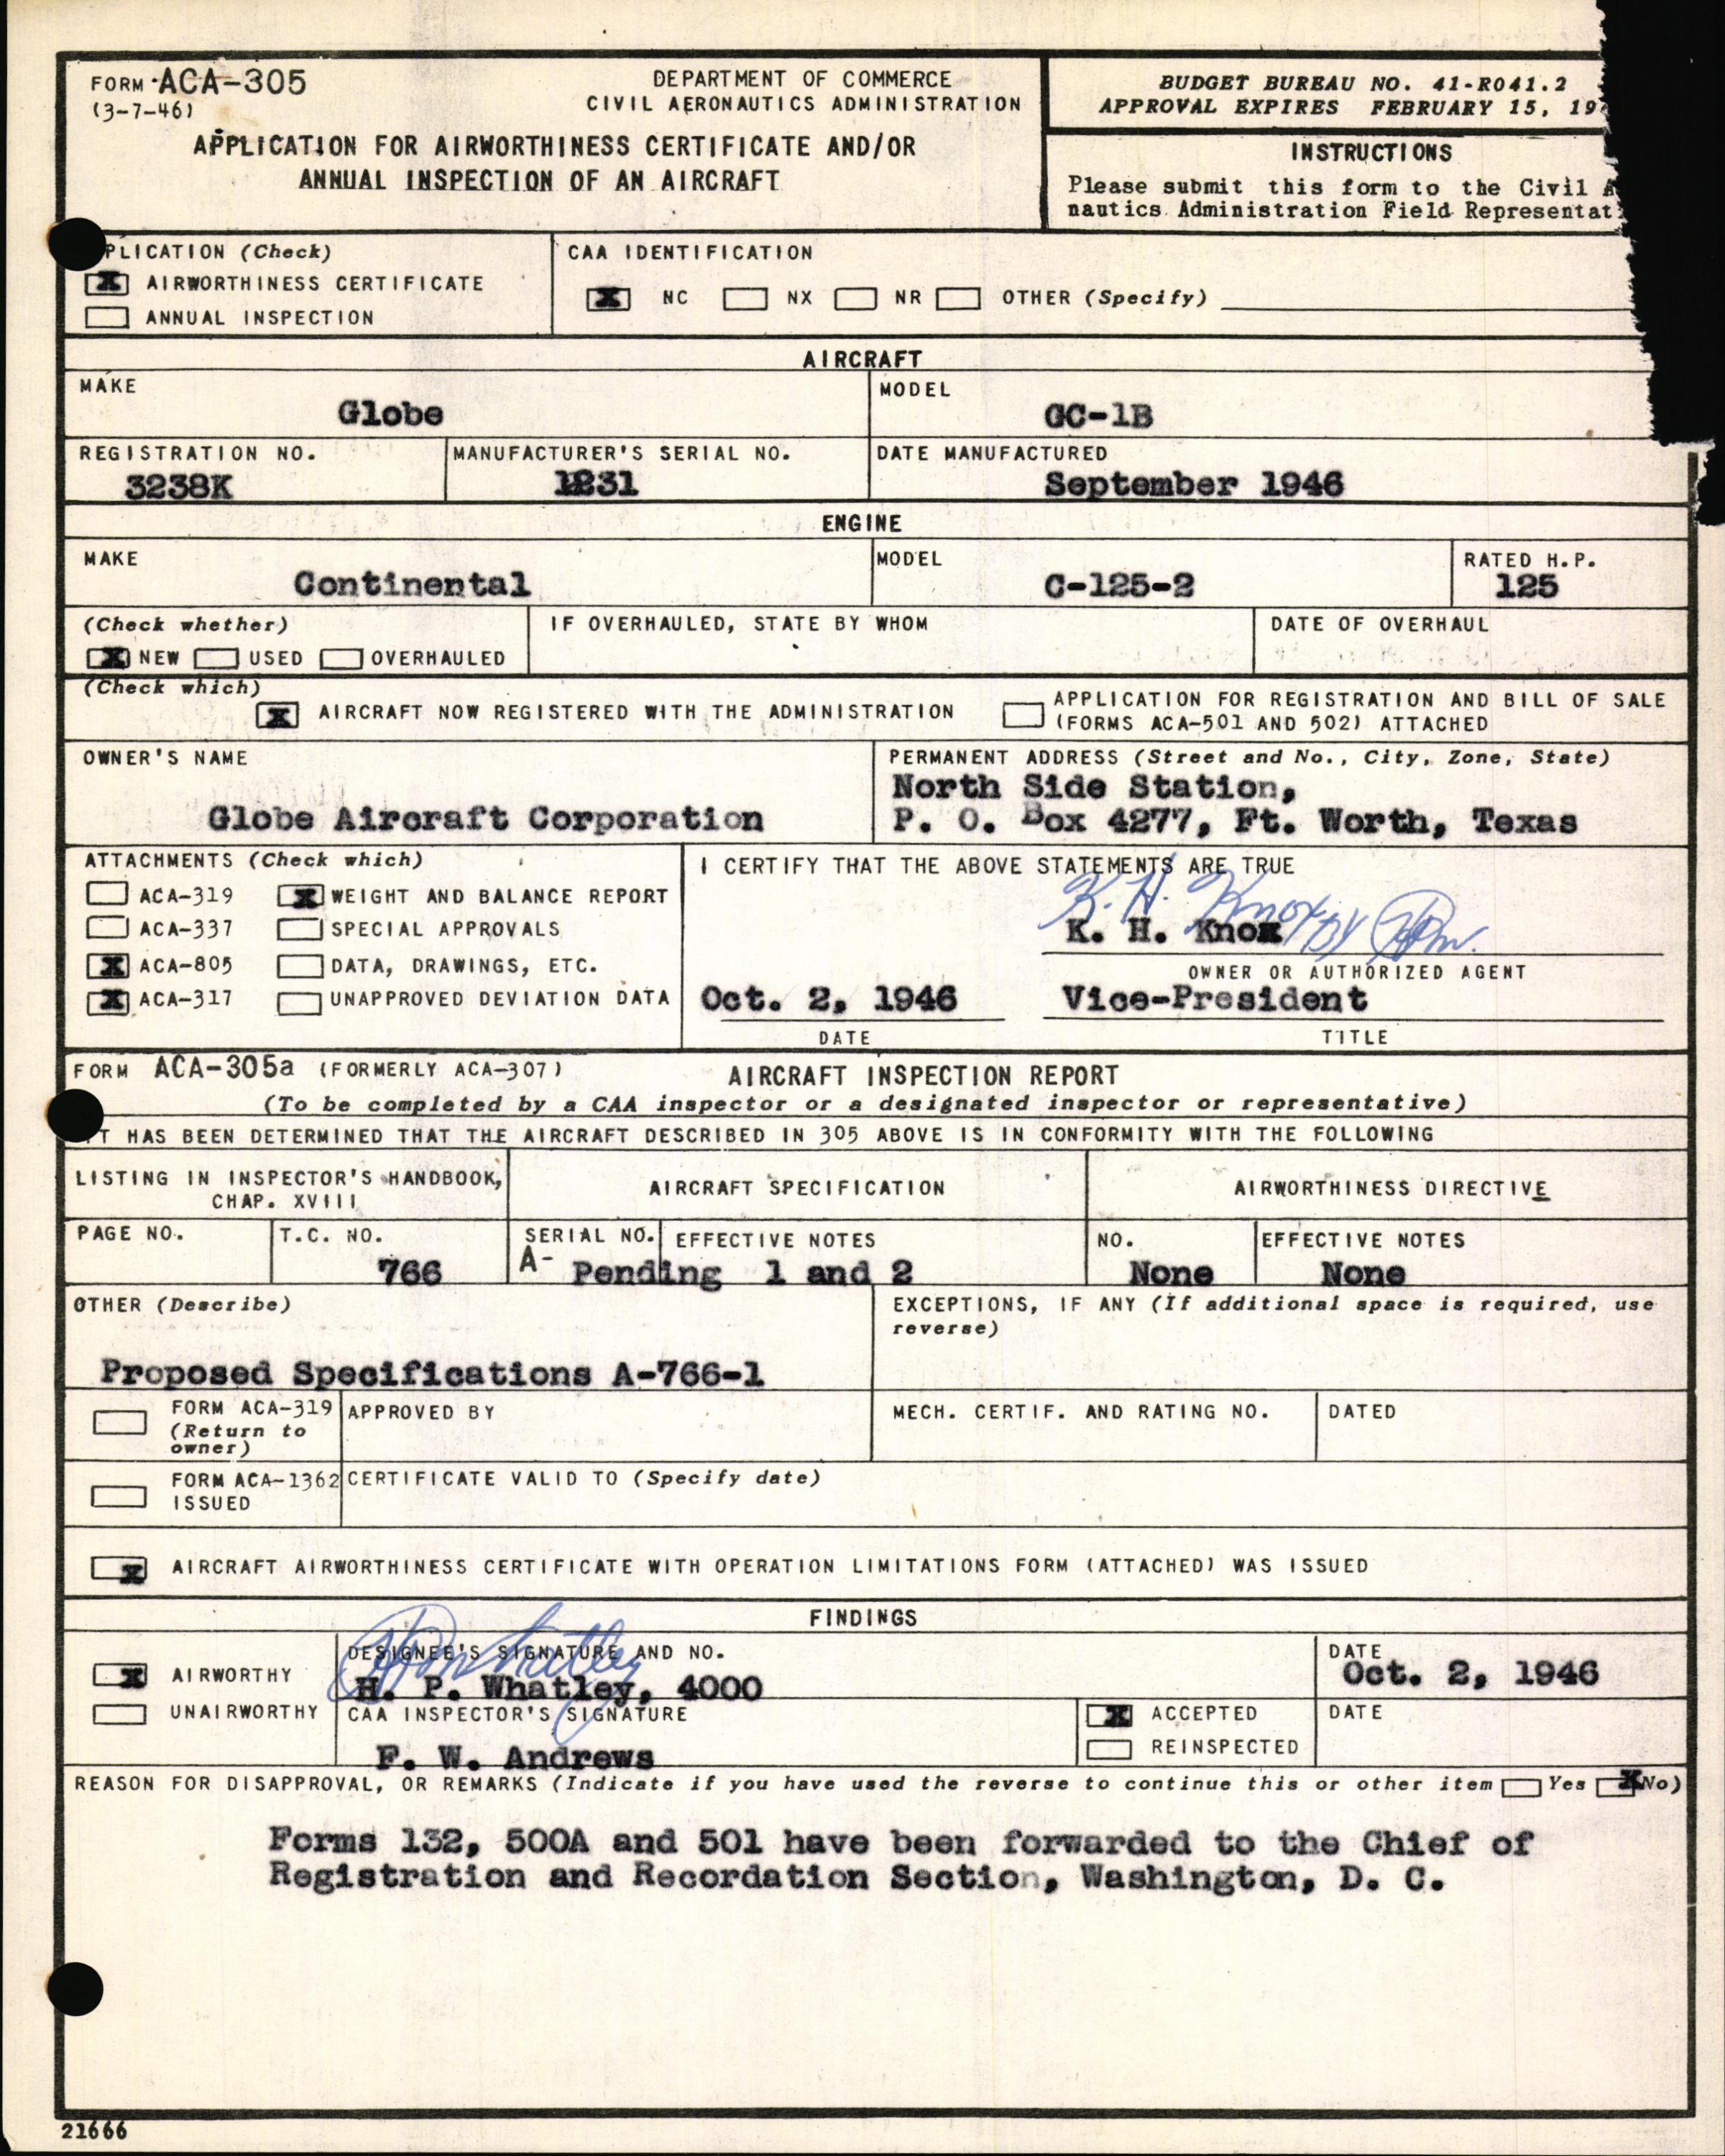 FORM ACA-305
(3-7-46)
DEPARTMENT OF COMMERCE
CIVIL AERONAUTICS ADMINISTRATION
APPLICATION FOR AIRWORTHINESS CERTIFICATE AND/OR
ANNUAL INSPECTION OF AN AIRCRAFT
BUDGET BUREAU NO. 41-R041.2
APPROVAL EXPIRES FEBRUARY 15, 19
INSTRUCTIONS
Please submit this form to the Civil A
nautics Administration Field Representat
PLICATION (Check)
X AIRWORTHINESS CERTIFICATE
ANNUAL INSPECTION
CAA IDENTIFICATION
X NC NX NR OTHER (Specify)
AIRCRAFT
MAKE
Globe
MODEL
GC-1B
REGISTRATION NO.
3238K
MANUFACTURER'S SERIAL NO.
1231
DATE MANUFACTURED
September 1946
ENGINE
MAKE
Continental
MODEL
C-125-2
RATED H.P.
125
(Check whether)
X NEW USED OVERHAULED
IF OVERHAULED, STATE BY WHOM
DATE OF OVERHAUL
(Check which)
X AIRCRAFT NOW REGISTERED WITH THE ADMINISTRATION
APPLICATION FOR REGISTRATION AND BILL OF SALE
(FORMS ACA-501 AND 502) ATTACHED
OWNER'S NAME
Globe Aircraft Corporation
PERMANENT ADDRESS (Street and No., City, Zone, State)
North Side Station,
P. O. Box 4277, Ft. Worth, Texas
ATTACHMENTS (Check which)
ACA-319 X WEIGHT AND BALANCE REPORT
ACA-337 SPECIAL APPROVALS
X ACA-805 DATA, DRAWINGS, ETC.
X ACA-317 UNAPPROVED DEVIATION DATA
I CERTIFY THAT THE ABOVE STATEMENTS ARE TRUE
K. H. Knox by
K. H. Knox
OWNER OR AUTHORIZED AGENT
Oct. 2, 1946 Vice-President
DATE TITLE
FORM ACA-305a (FORMERLY ACA-307) AIRCRAFT INSPECTION REPORT
(To be completed by a CAA inspector or a designated inspector or representative)
IT HAS BEEN DETERMINED THAT THE AIRCRAFT DESCRIBED IN 305 ABOVE IS IN CONFORMITY WITH THE FOLLOWING
LISTING IN INSPECTOR'S HANDBOOK,
CHAP. XVIII
AIRCRAFT SPECIFICATION
AIRWORTHINESS DIRECTIVE
PAGE NO.
T.C. NO.
766
SERIAL NO. EFFECTIVE NOTES
A- Pending 1 and 2
NO.
None
EFFECTIVE NOTES
None
OTHER (Describe)
Proposed Specifications A-766-1
EXCEPTIONS, IF ANY (If additional space is required, use
reverse)
FORM ACA-319
(Return to
owner)
APPROVED BY
MECH. CERTIF. AND RATING NO.
DATED
FORM ACA-1362
ISSUED
CERTIFICATE VALID TO (Specify date)
X AIRCRAFT AIRWORTHINESS CERTIFICATE WITH OPERATION LIMITATIONS FORM (ATTACHED) WAS ISSUED
FINDINGS
X AIRWORTHY
UNAIRWORTHY
DESIGNEE'S SIGNATURE AND NO.
HP Whatley
H. P. Whatley, 4000
DATE
Oct. 2, 1946
CAA INSPECTOR'S SIGNATURE
F. W. Andrews
X ACCEPTED
REINSPECTED
DATE
REASON FOR DISAPPROVAL, OR REMARKS (Indicate if you have used the reverse to continue this or other item Yes X No)
Forms 132, 500A and 501 have been forwarded to the Chief of
Registration and Recordation Section, Washington, D. C.
21666